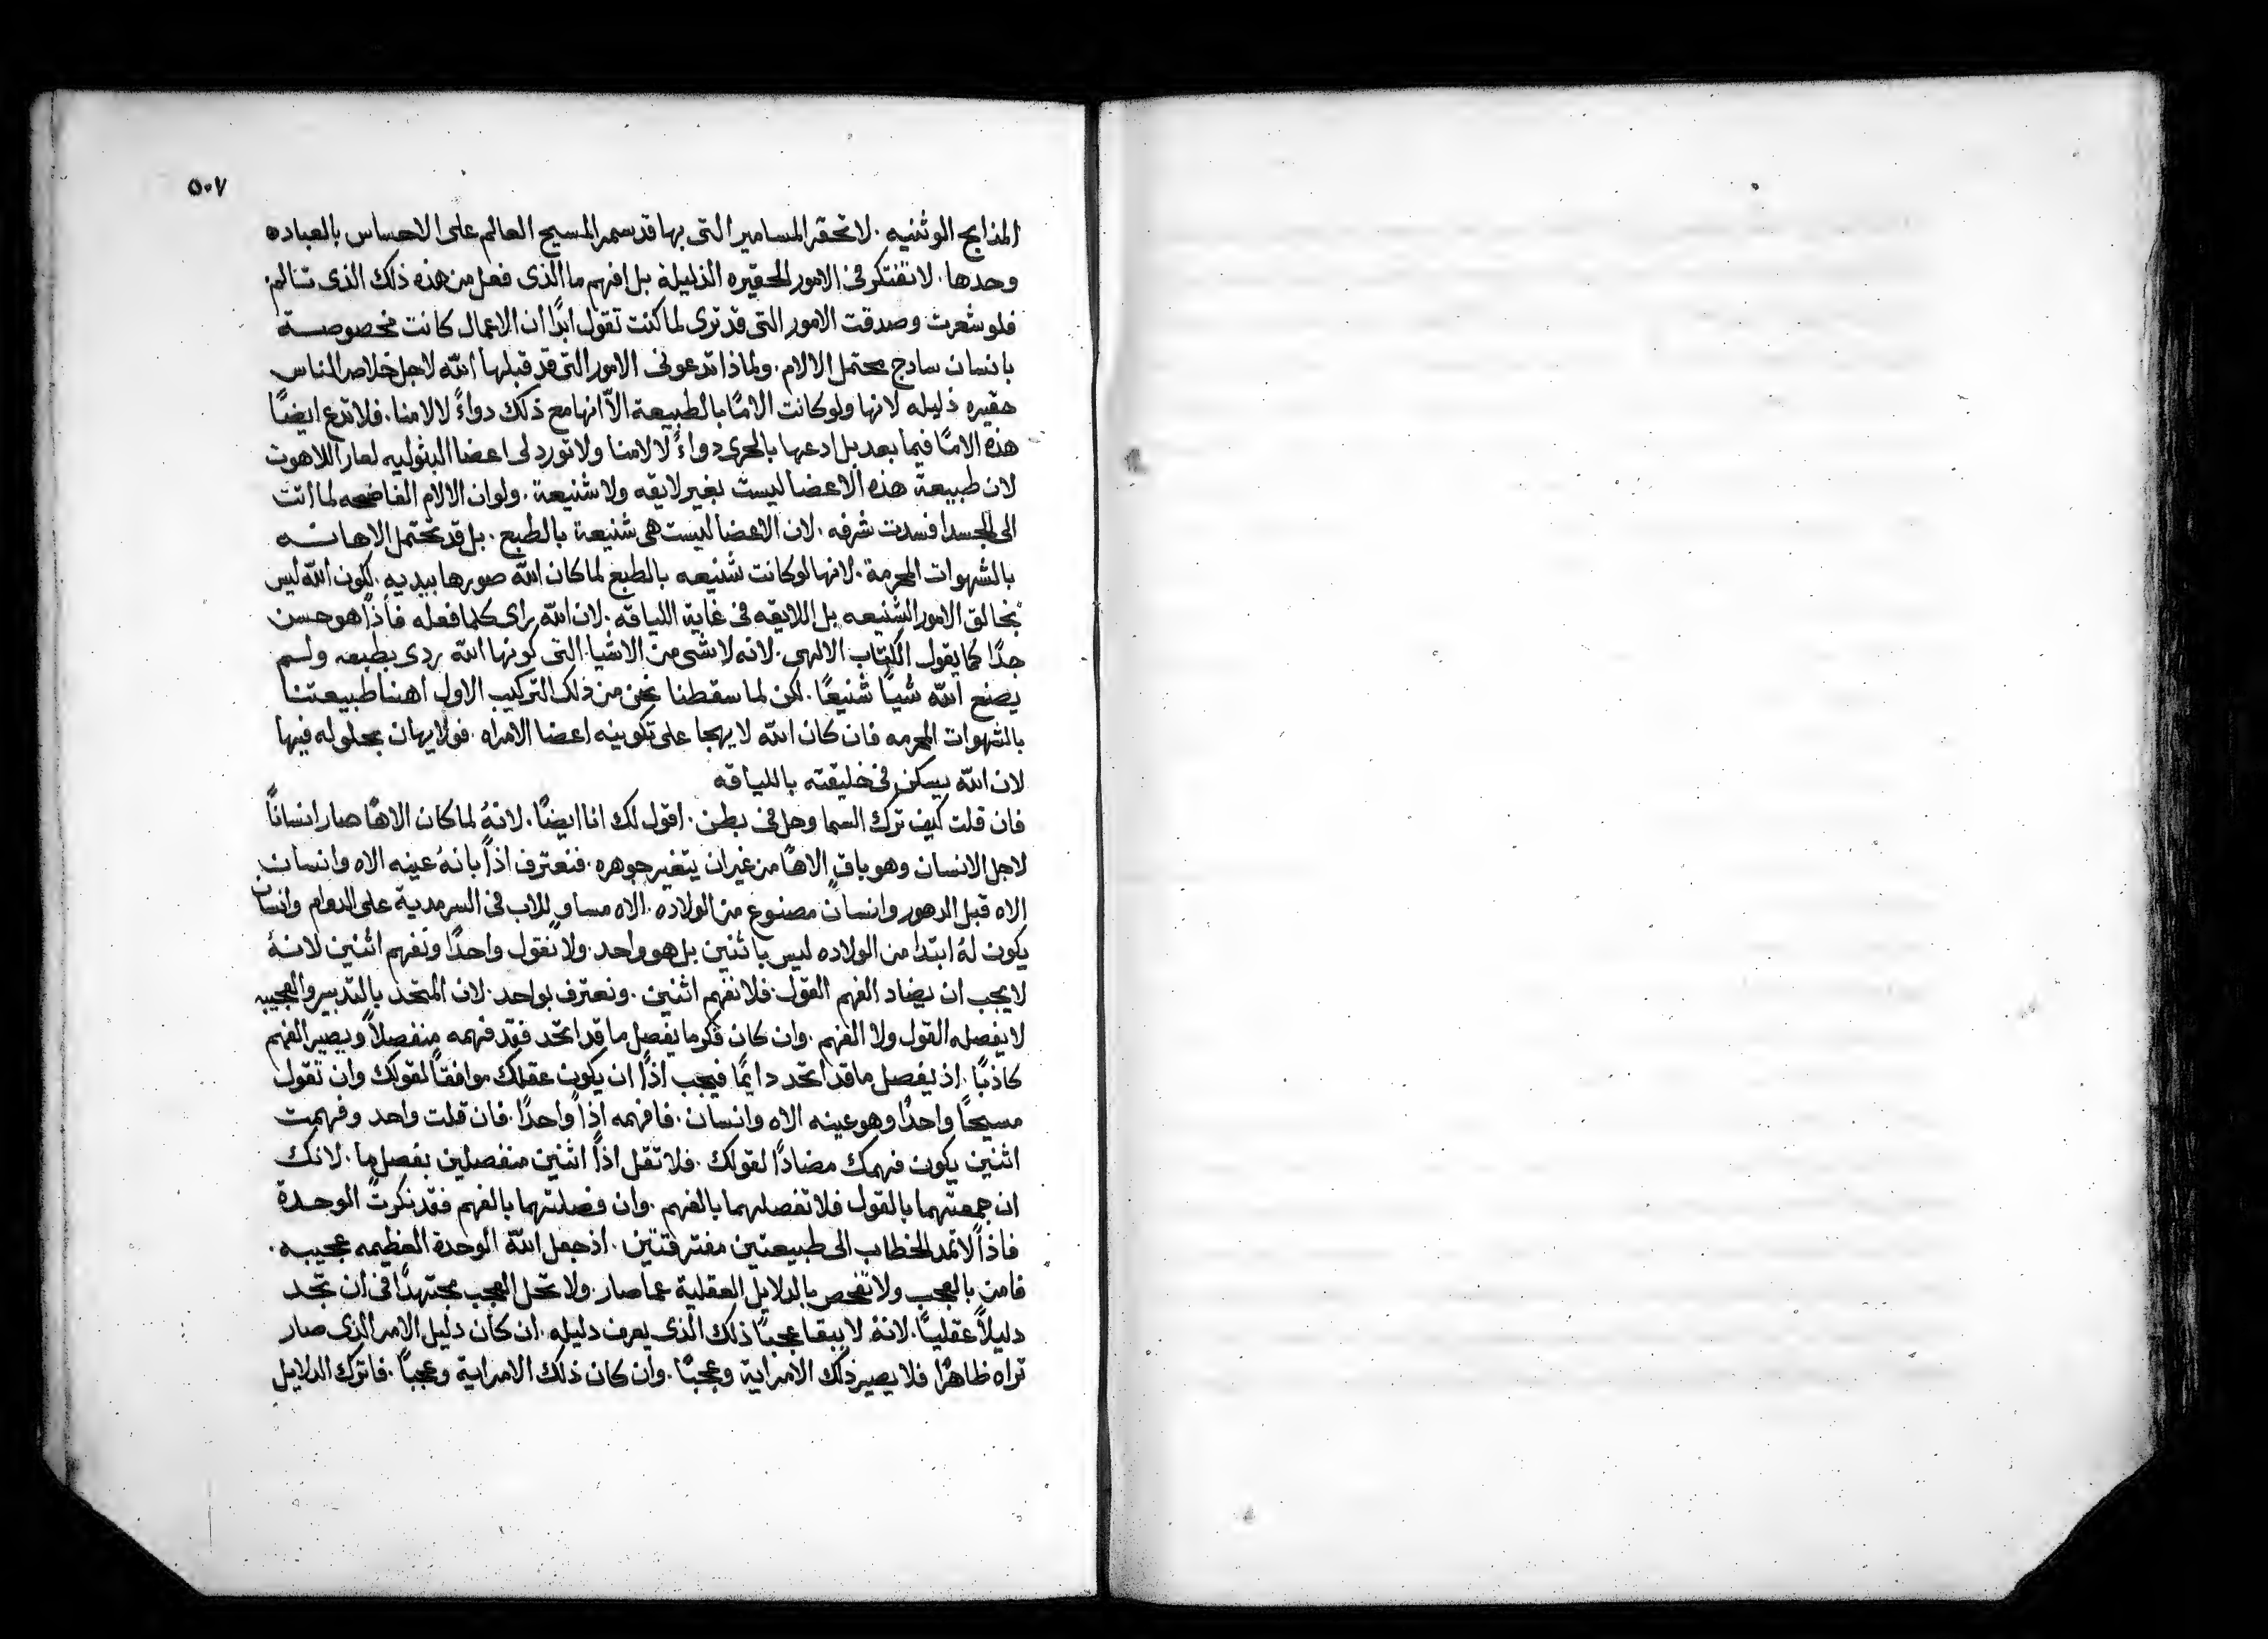 ٥٠٧
المذابح الوثنيه . لا تحقر المسامير التى بها قد سمر المسيح العالم على الاحساس بالعباده
وحدها . لا تفتكر فى الامور الحقيره الذليلة بل افهم ما الذى فعل من هذه ذلك الذى تتالم
فلو شعرت وصدقت الامور التى قد ترى لما كنت تقول ابدًا ان الاعمال كانت مخصوصة
بانسان سادج محتمل الالام . ولماذا تدعونى الامور التى قد قبلها الله لاجل خلاص الناس
حقيره ذليله لانها ولو كانت الامًا بالطبيعة الاّ انها مع ذلك دواءً لالامنا . فلا تدع ايضًا
هذه الامًا فيما بعد بل ادعها بالحرى دواءً لالامنا ولا تورد لى اعضا البثوليه لعار اللاهوت
لان طبيعة هذه الاعضا ليست بغير لايقه ولا شنيعة . ولو ان الالام الفاضحه لما اتت
الى الجسد افسدت شرفه . لان الاعضا ليست هى شنيعة بالطبع . بل قد تحتمل الاهانه
بالشهوات المحرمة . لانها لو كانت شنيعه بالطبع لما كان الله صورها بيديه . لكون الله ليس
بخالق الامور الشنيعه بل اللايقه فى غاية اللياقه . لان الله راى كلما فعله فاذًا هو حسن
جدًا كما يقول الكتاب الالهى . لانه لا شى من الاشيا التى كونها الله ردى بطبعه ولم
يصنع الله شيًا شنيعًا . لكن لما سقطنا نحن من ذلك التركيب الاول اهنا طبيعتنا
بالشهوات المحرمه فان كان الله لا يهجا على تكوينه اعضا الامراه . فولا يهان بحلوله فيها
لان الله يسكن فى خليقته باللياقه
فان قلت كيف ترك السما وحل فى بطن . اقول لك انا ايضًا . لانهُ لما كان الاهًا صار انسانًا
لاجل الانسان وهو باقٍ الاهًا من غير ان يتغير جوهره . فنعترف اذًا بانهُ عينه الاه وانسان
الاه قبل الدهور وانسان مصنوع من الولاده . الاه مساوٍ للاب فى السرمدية على الدوام وانسان
يكون لهُ ابتدا من الولاده ليس باثنين بل هو واحد . ولا نقول واحدًا ونفهم اثنين لانهُ
لا يجب ان يضاد الفهم القول . فلا نفهم اثنين . ونعترف بواحد . لان المتحد بالتدبير والعجيبه
لا يفصله القول ولا الفهم . وان كان فكر ما يفصل ما قد اتحد فقد فهمه منفصلاً ويصير الفهم
كاذبًا . اذ يفصل ما قد اتحد دايمًا فيجب اذًا ان يكون عقلك موافقًا لقولك وان تقول
مسيحًا واحدًا وهو عينه الاه وانسان . فافهمه اذًا واحدًا . فان قلت واحد وفهمت
اثنين يكون فهمك مضادًا لقولك . فلا تقل اذًا اثنين منفصلين بفصل ما . لانك
ان جمعتهما بالقول فلا تفصلهما بالفهم . وان فصلتهما بالفهم فقد نكرت الوحدة
فاذًا لا تمد الخطاب الى طبيعتين مفترقتين . اذ جعل الله الوحدة العظيمه عجيبه .
فامن بالعجب ولا تفحص بالدلايل العقلية عما صار . ولا تحل العجب مجتهدًا فى ان تجد
دليلاً عقليًا . لانهُ لا يبقا عجبًا ذلك الذى يعرف دليله . ان كان دليل الامر الذى صار
تراه ظاهرًا فلا يصير ذلك الامر اية وعجبًا . وان كان ذلك الامر اية وعجبًا . فاترك الدلايل